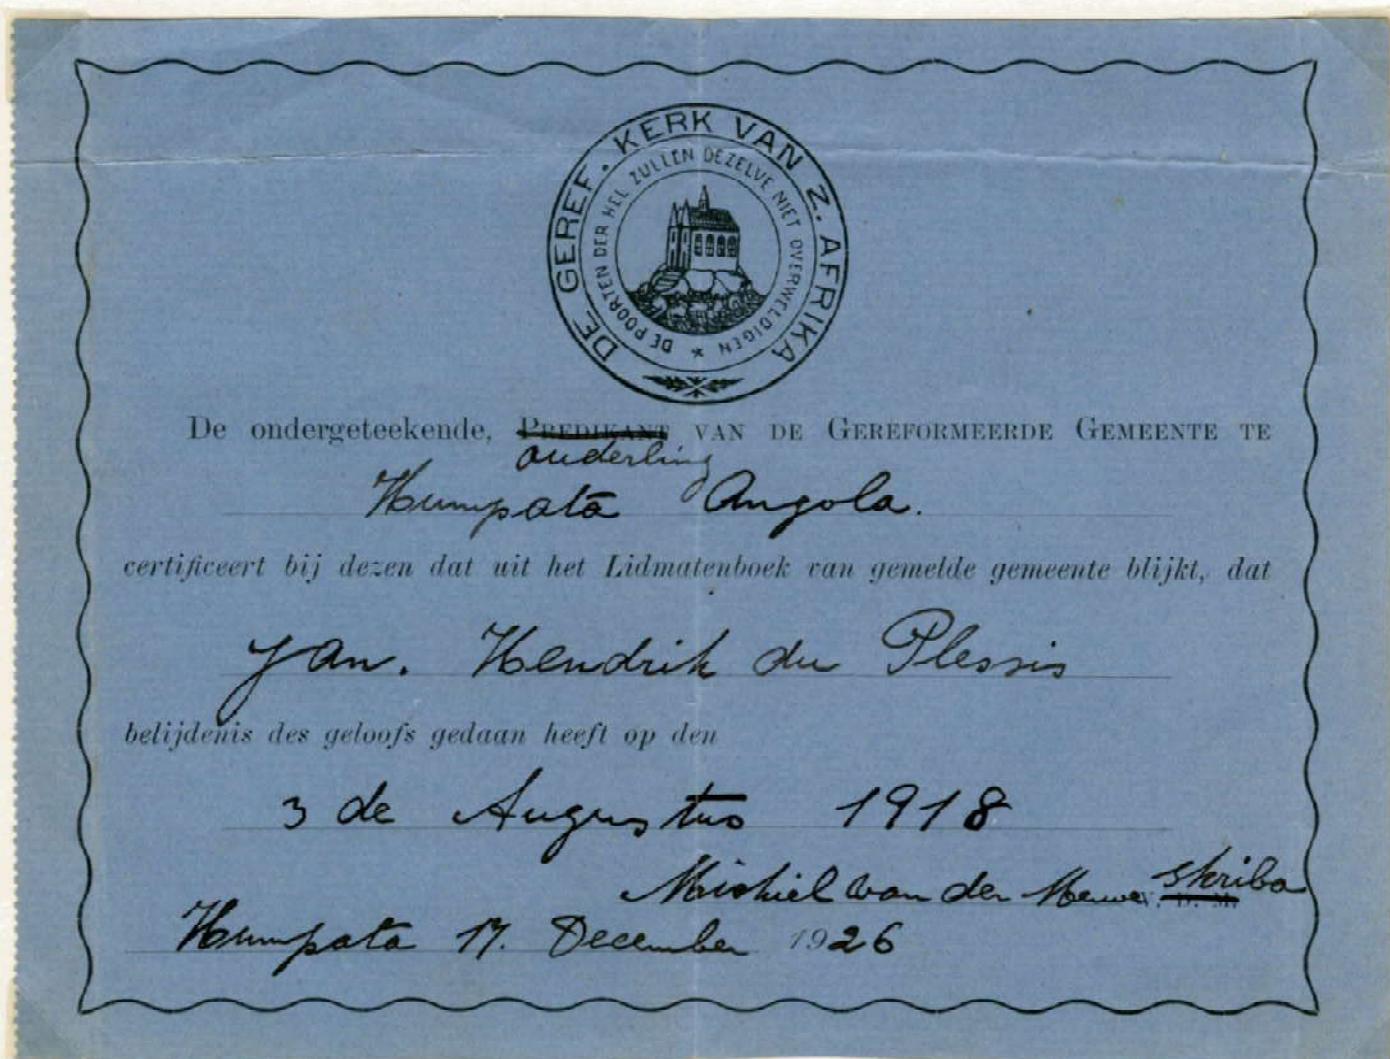 DE GEREF. KERK VAN Z. AFRIKA
DE POORTEN DER HEL ZULLEN DEZELVE NIET OVERWELDIGEN *
De ondergeteekende, PREDIKANT VAN DE GEREFORMEERDE GEMEENTE TE
ouderling
Humpata Angola.
certificeert bij dezen dat uit het Lidmatenboek van gemelde gemeente blijkt, dat
Jan. Hendrik du Plessis
belijdenis des geloofs gedaan heeft op den
3 de Augustus 1918
Michiel van der Merwe V. D. M. skriba
Humpata 17. December 1926